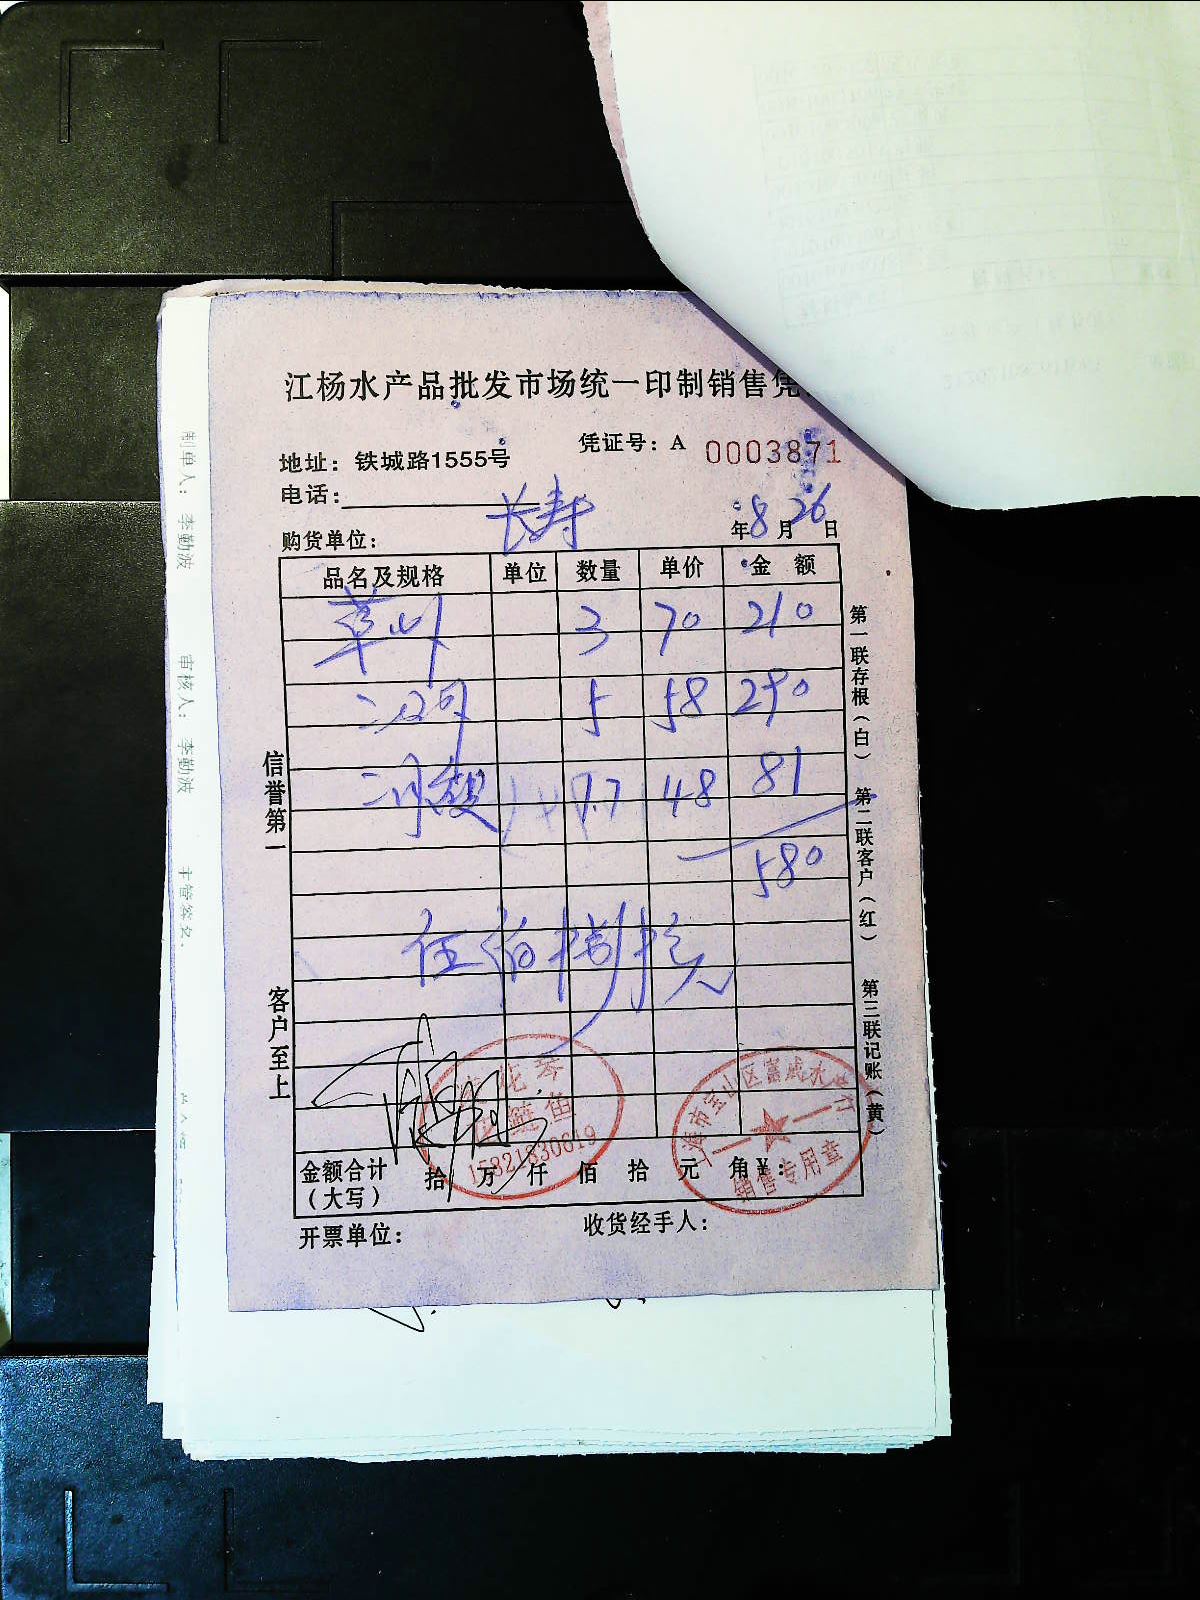 江杨水产品批发市场统一印制销售凭
凭证号：A 0003871
地址：铁城路1555号
电话：
购货单位：长寿
年8月26日
品名及规格 单位 数量 单价 金 额
草 3 70 210
5 58 290
1.7 48 81
580
伍佰捌拾元
信誉第一
客户至上
第一联存根（白）
第二联客户（红）
第三联记账（黄）
花琴
鲢鱼
15821830619
上海市宝山区嘉威水
销售专用章
金额合计（大写） 拾 万 仟 佰 拾 元 角¥：
开票单位： 收货经手人：
制单人：李勤波
审核人：李勤波
主管签名：